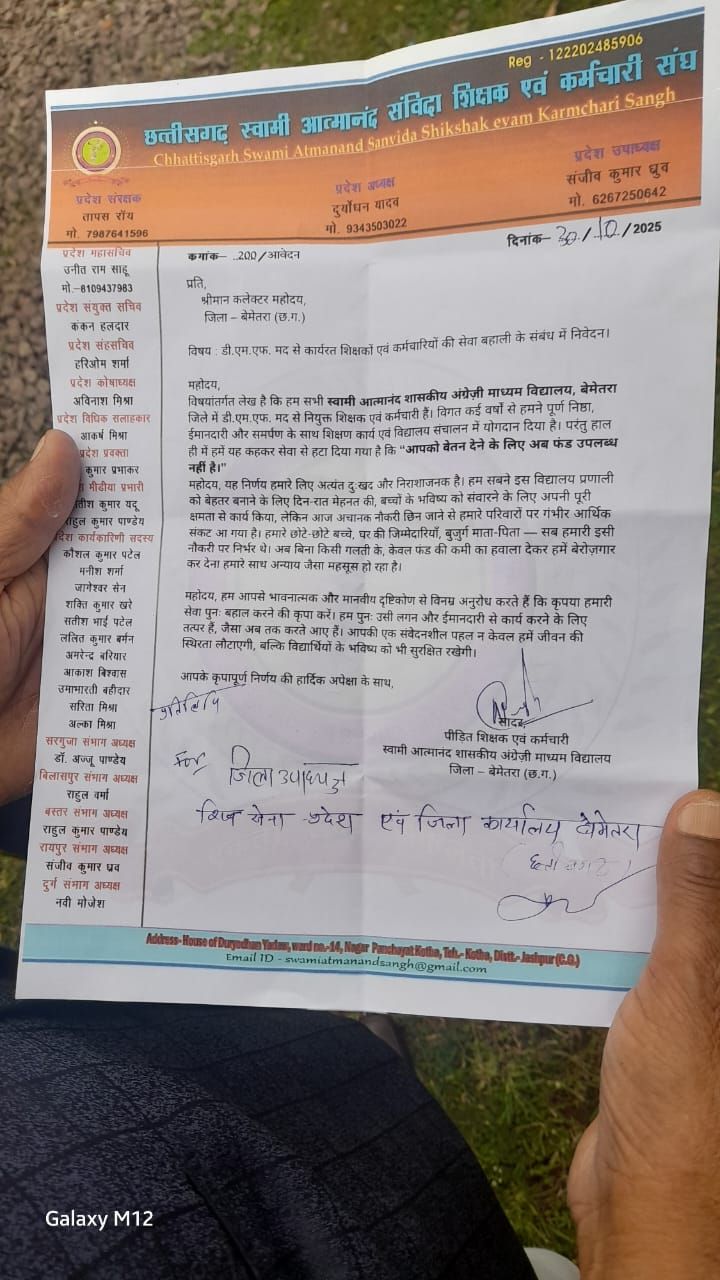 Reg - 122202485906
छत्तीसगढ़ स्वामी आत्मानंद संविदा शिक्षक एवं कर्मचारी संघ
Chhattisgarh Swami Atmanand Sanvida Shikshak evam Karmchari Sangh
प्रदेश संरक्षक
तापस रॉय
मो. 7987641596
प्रदेश अध्यक्ष
दुर्योधन यादव
मो. 9343503022
प्रदेश उपाध्यक्ष
संजीव कुमार ध्रुव
मो. 6267250642
प्रदेश महासचिव
उनीत राम साहू
मो.–8109437983
प्रदेश संयुक्त सचिव
कंकन हलदार
प्रदेश सहसचिव
हरिओम शर्मा
प्रदेश कोषाध्यक्ष
अविनाश मिश्रा
प्रदेश विधिक सलाहकार
आकर्ष मिश्रा
प्रदेश प्रवक्ता
कुमार प्रभाकर
मीडीया प्रभारी
कुमार यदू
राहुल कुमार पाण्डेय
कार्यकारिणी सदस्य
कौशल कुमार पटेल
मनीश शर्मा
जागेश्वर सेन
शक्ति कुमार खरे
सतीश भाई पटेल
ललित कुमार बर्मन
अमरेन्द्र बरियार
आकाश बिश्वास
उमाभारती बहीदार
सरिता मिश्रा
अल्का मिश्रा
सरगुजा संभाग अध्यक्ष
डॉ. अज्जू पाण्डेय
बिलासपुर संभाग अध्यक्ष
राहुल वर्मा
बस्तर संभाग अध्यक्ष
राहुल कुमार पाण्डेय
रायपुर संभाग अध्यक्ष
संजीव कुमार ध्रव
दुर्ग संभाग अध्यक्ष
नवी मोजेश
क्रमांक– ..200/आवेदन
दिनांक– 30./.10./2025
प्रति,
श्रीमान कलेक्टर महोदय,
जिला – बेमेतरा (छ.ग.)
विषय : डी.एम.एफ. मद से कार्यरत शिक्षकों एवं कर्मचारियों की सेवा बहाली के संबंध में निवेदन।
महोदय,
विषयांतर्गत लेख है कि हम सभी स्वामी आत्मानंद शासकीय अंग्रेज़ी माध्यम विद्यालय, बेमेतरा
जिले में डी.एम.एफ. मद से नियुक्त शिक्षक एवं कर्मचारी हैं। विगत कई वर्षों से हमने पूर्ण निष्ठा,
ईमानदारी और समर्पण के साथ शिक्षण कार्य एवं विद्यालय संचालन में योगदान दिया है। परंतु हाल
ही में हमें यह कहकर सेवा से हटा दिया गया है कि “आपको वेतन देने के लिए अब फंड उपलब्ध
नहीं है।”
महोदय, यह निर्णय हमारे लिए अत्यंत दुःखद और निराशाजनक है। हम सबने इस विद्यालय प्रणाली
को बेहतर बनाने के लिए दिन-रात मेहनत की, बच्चों के भविष्य को संवारने के लिए अपनी पूरी
क्षमता से कार्य किया, लेकिन आज अचानक नौकरी छिन जाने से हमारे परिवारों पर गंभीर आर्थिक
संकट आ गया है। हमारे छोटे-छोटे बच्चे, घर की जिम्मेदारियाँ, बुजुर्ग माता-पिता — सब हमारी इसी
नौकरी पर निर्भर थे। अब बिना किसी गलती के, केवल फंड की कमी का हवाला देकर हमें बेरोज़गार
कर देना हमारे साथ अन्याय जैसा महसूस हो रहा है।
महोदय, हम आपसे भावनात्मक और मानवीय दृष्टिकोण से विनम्र अनुरोध करते हैं कि कृपया हमारी
सेवा पुनः बहाल करने की कृपा करें। हम पुनः उसी लगन और ईमानदारी से कार्य करने के लिए
तत्पर हैं, जैसा अब तक करते आए हैं। आपकी एक संवेदनशील पहल न केवल हमें जीवन की
स्थिरता लौटाएगी, बल्कि विद्यार्थियों के भविष्य को भी सुरक्षित रखेगी।
आपके कृपापूर्ण निर्णय की हार्दिक अपेक्षा के साथ,
सादर
पीडित शिक्षक एवं कर्मचारी
स्वामी आत्मानंद शासकीय अंग्रेज़ी माध्यम विद्यालय
जिला – बेमेतरा (छ.ग.)
प्रतिलिपि
For जिला उपाध्यक्ष
शिव सेना प्रदेश एवं जिला कार्यालय बेमेतरा
Address- House of Duryodhan Yadaw, ward no.-14, Nagar Panchayat Kotba, Teh.- Kotba, Distt.- Jashpur (C.G.)
Email ID - swamiatmanandsangh@gmail.com
Galaxy M12